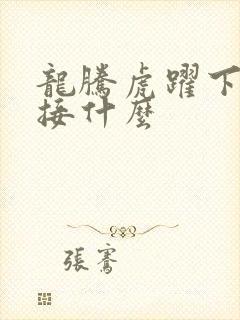 龍騰虎躍下
接什麼
張騫